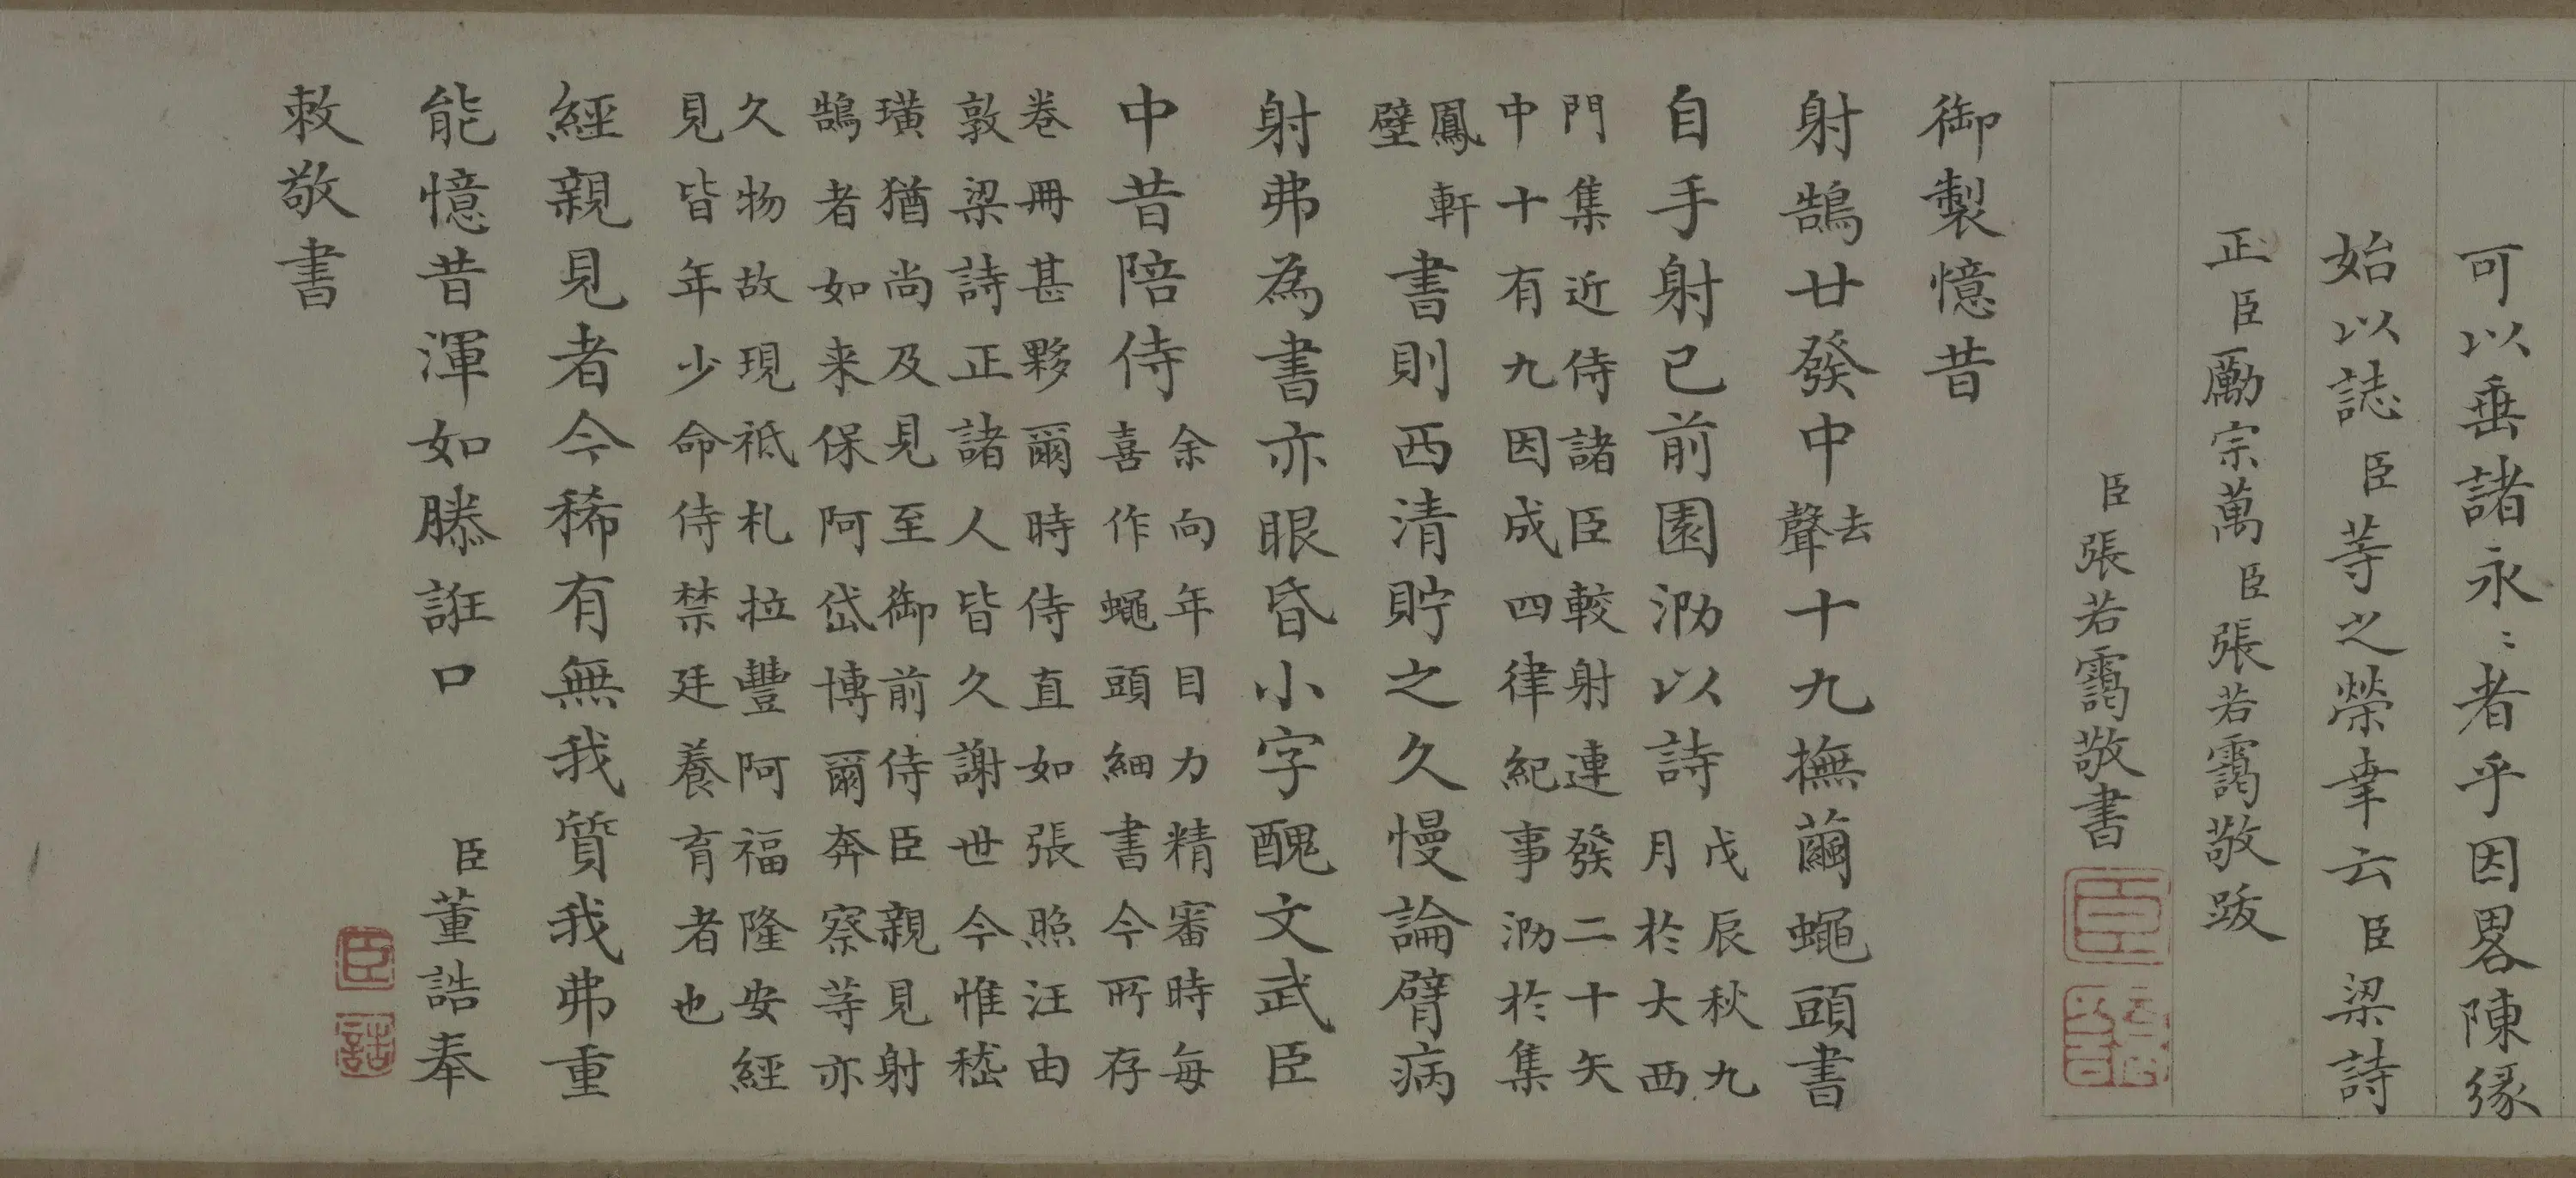 可以垂諸永〻者乎因畧陳緣
始以誌臣等之榮幸云臣梁詩
正臣勵宗萬臣張若靄敬跋
臣張若靄敬書
御製憶昔
射鵠廿發中去聲十九撫繭蠅頭書
自手射已前園泐以詩戊辰秋九月於大西
門集近侍諸臣較射連發二十矢
中十有九因成四律紀事泐於集
鳳軒壁書則西清貯之久慢論臂病
射弗為書亦眼昏小字醜文武臣
中昔陪侍余向年目力精審時每喜作蠅頭細書今所存
卷冊甚夥爾時侍直如張照汪由
敦梁詩正諸人皆久謝世今惟嵇
璜猶尚及見至御前侍臣親見射
鵠者如来保阿岱博爾奔察等亦
久物故現祗札拉豐阿福隆安經
見皆年少命侍禁廷養育者也
經親見者今稀有無我質我弗重
能憶昔渾如滕誑口臣董誥奉
敕敬書
臣
誥
臣